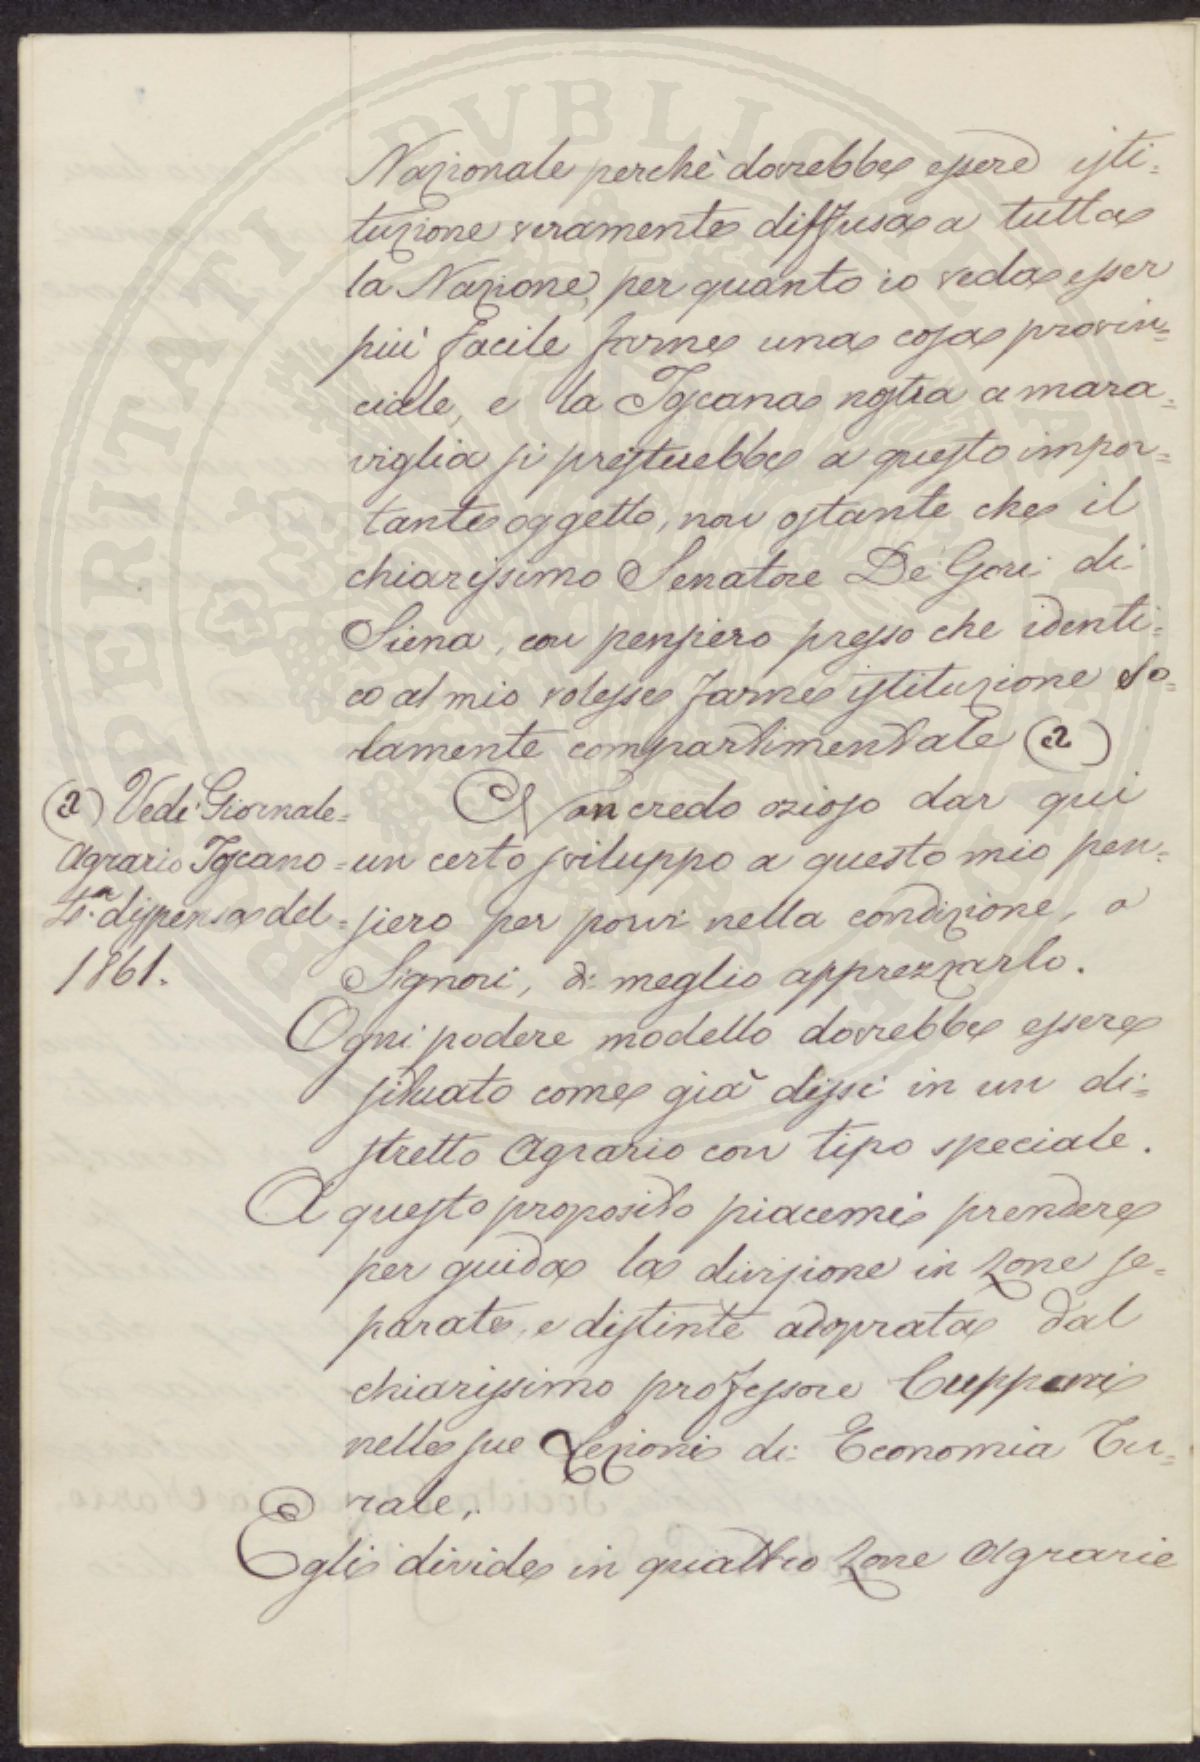 Nazionale perchè dovrebbe essere isti=
tuzione veramente diffusa a tutta
la Nazione, per quanto io veda esser
più facile farne una cosa provin=
ciale, e la Toscana nostra a mara=
viglia si presterebbe a questo impor=
tante oggetto, non ostante che il
chiarissimo Senatore De Gori di
Siena, con pensiero presso che identi=
co al mio volesse farne istituzione so=
lamente compartimentale (2)
Non credo ozioso dar qui
un certo sviluppo a questo mio pen=
siero per porvi nella condizione, o
Signori, di meglio apprezzarlo.
(2) Vedi Giornale=
Agrario Toscano=
4.a dispensa del=
1861.
Ogni podere modello dovrebbe essere
situato come già dissi in un di=
stretto Agrario con tipo speciale.
A questo proposito piacemi prendere
per guida la divisione in zone se=
parate, e distinte adoprata dal
chiarissimo professore Cuppari
nelle sue Lezioni di Economia Ru=
rale.
Egli divide in quattro zone Agrarie
PERITATI PVBLICAE